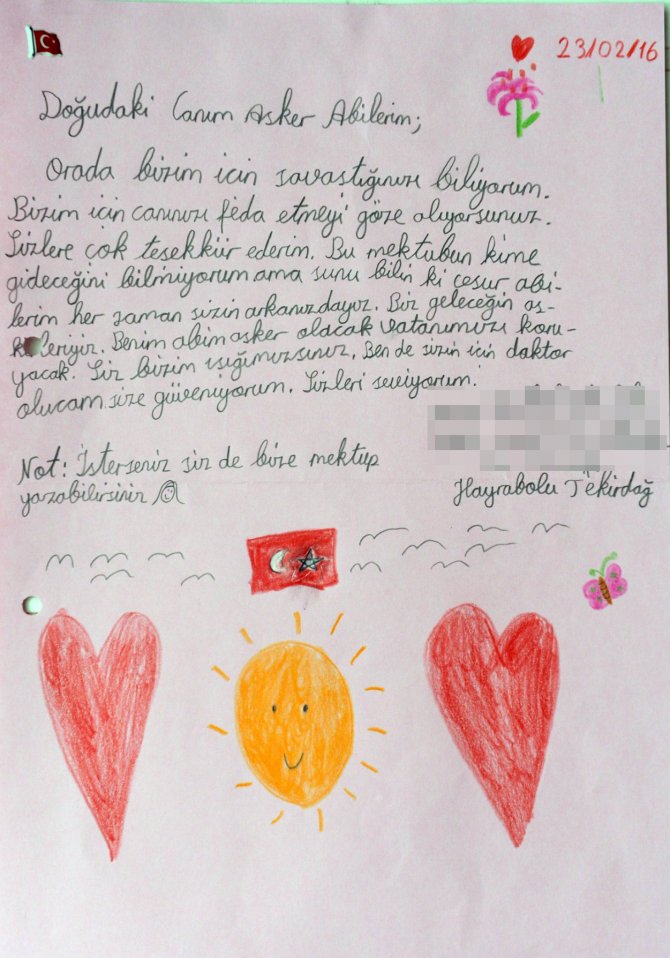 23/02/16
Doğudaki Canım Asker Abilerim;
Orada bizim için savaştığınızı biliyorum.
Bizim için canınızı feda etmeyi göze alıyorsunuz.
Sizlere çok teşekkür ederim. Bu mektubun kime
gideceğini bilmiyorum ama şunu bilin ki cesur abi-
lerim her zaman sizin arkanızdayız. Biz geleceğin as-
leriyiz. Benim abim asker olacak vatanımızı koru-
yacak. Siz bizim ışığımızsınız. Ben de sizin için daktor
olucam size güveniyorum. Sizleri seviyorum.
Not: İsterseniz siz de bize mektup
yazabilirsiniz
Hayrabolu Tekirdağ